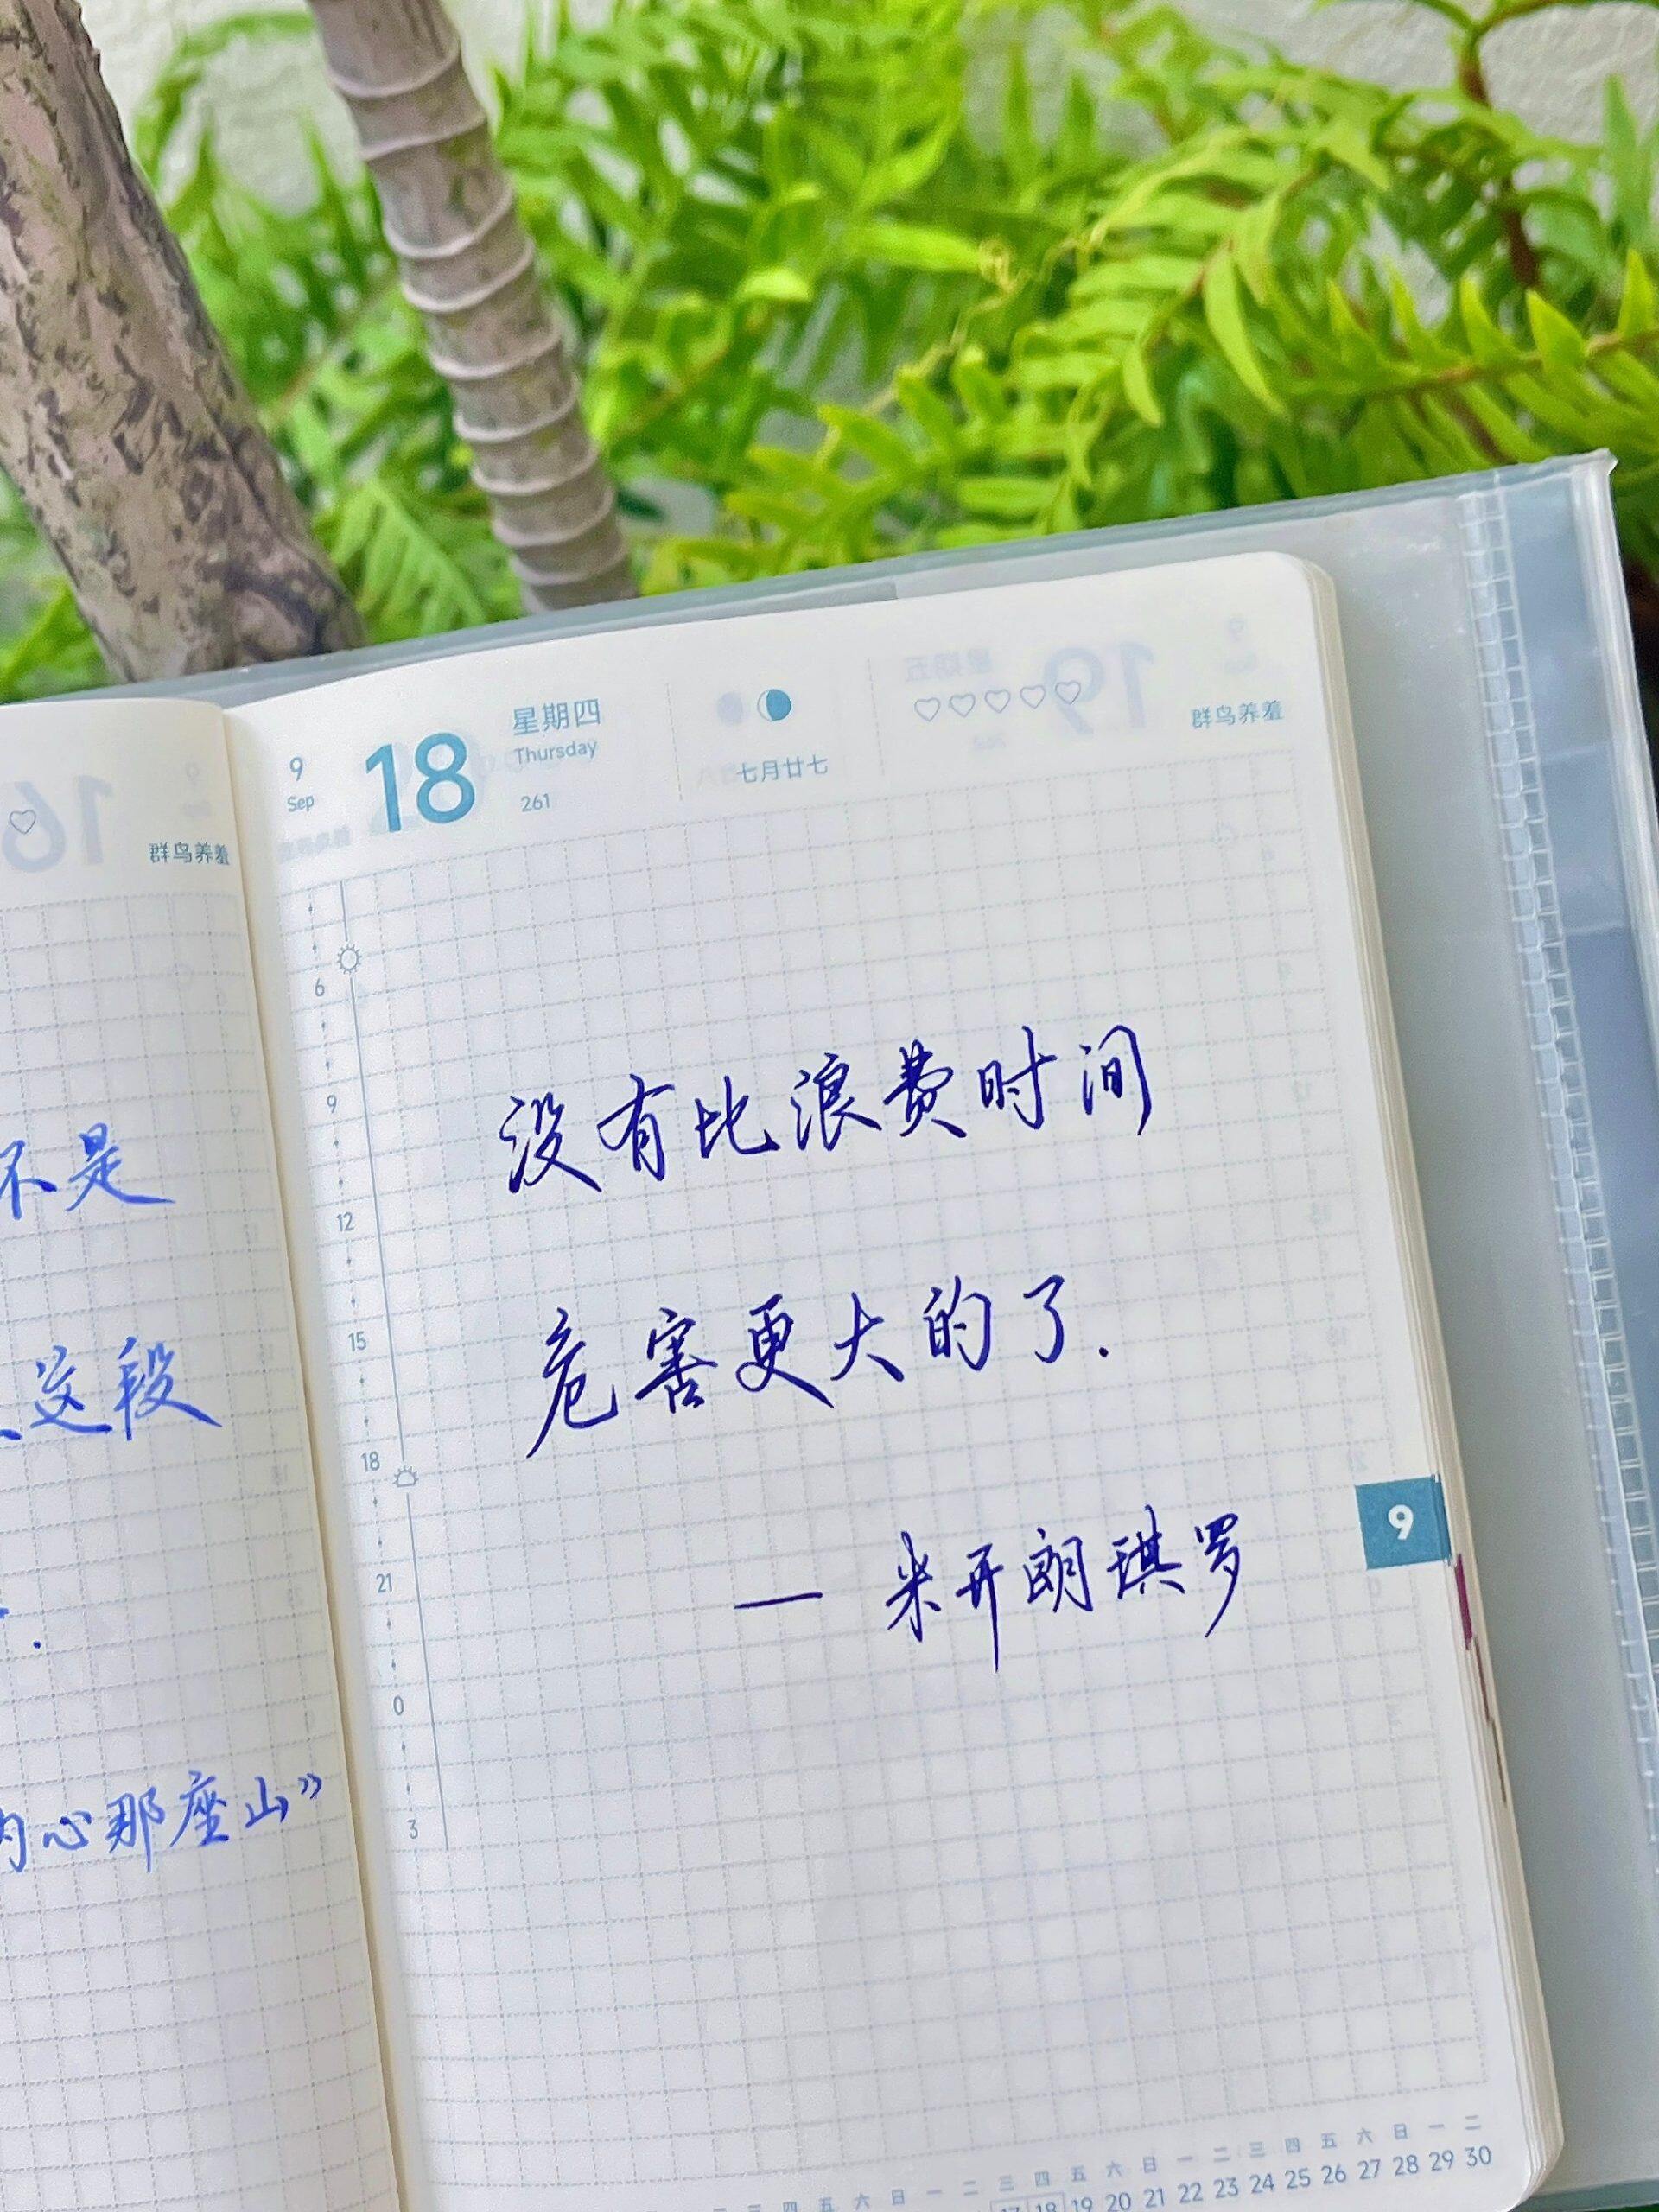 16
群鸟养羞
不是
这段
.
内心那座山”
9
Sep
18
星期四
Thursday
261
七月廿七
群鸟养羞
6
9
12
15
18
21
0
3
没有比浪费时间
危害更大的了.
— 米开朗琪罗
9
三 四 五 六 日 一 二 三 四 五 六 日 一 二 三 四 五 六 日 一 二
17 18 19 20 21 22 23 24 25 26 27 28 29 30